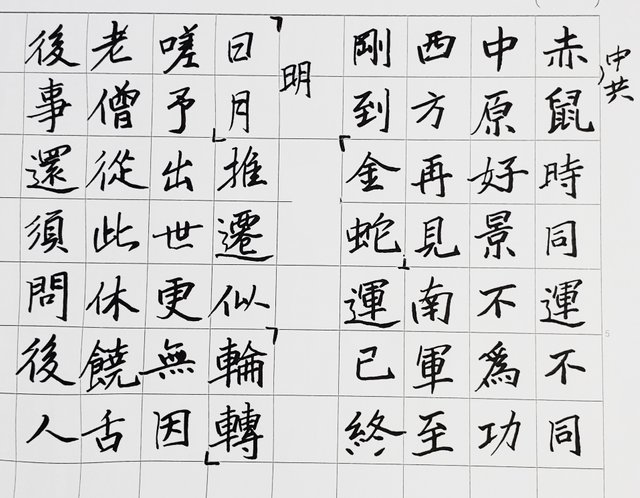 中共
赤鼠時同運不同
中原好景不為功
西方再見南軍至
剛到「金蛇」運已終
明
「日月」推遷似「輪轉」
嗟予出世更無因
老僧從此休饒舌
後事還須問後人
5